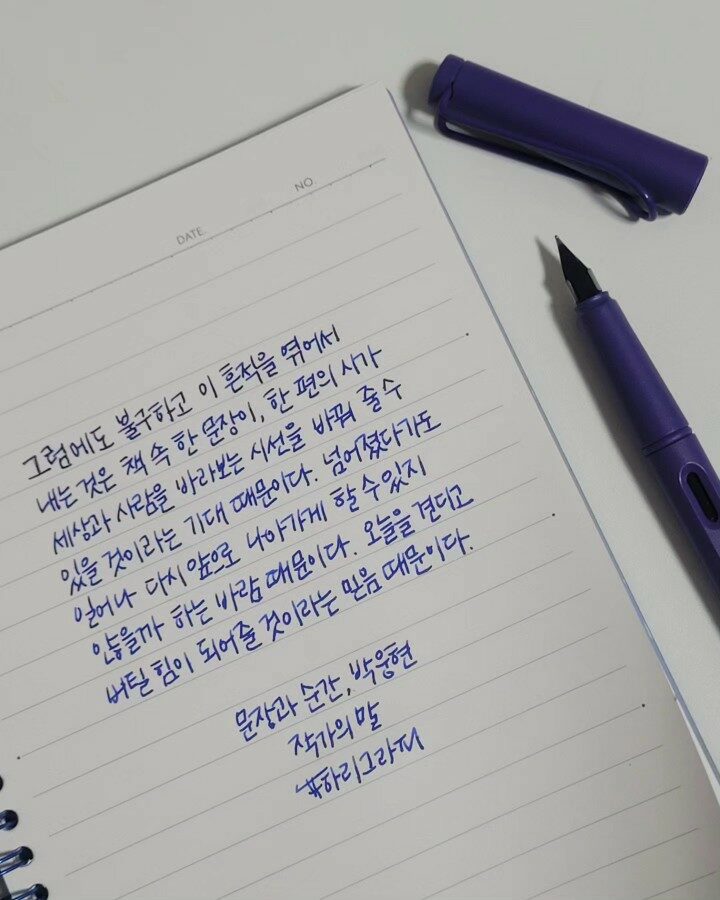 NO.
DATE
그럼에도 불구하고 이 흔적을 엮어서
내는 것은 책 속 한 문장이, 한 편의 시가
세상과 사람을 바라보는 시선을 바꿔 줄 수
있을 것이라는 기대 때문이다. 넘어졌다가도
일어나 다시 앞으로 나아가게 할 수 있지
않을까 하는 바람 때문이다. 오늘을 견디고
버틸 힘이 되어줄 것이라는 믿음 때문이다.
문장과 순간, 박웅현
작가의 말
#하리그라피